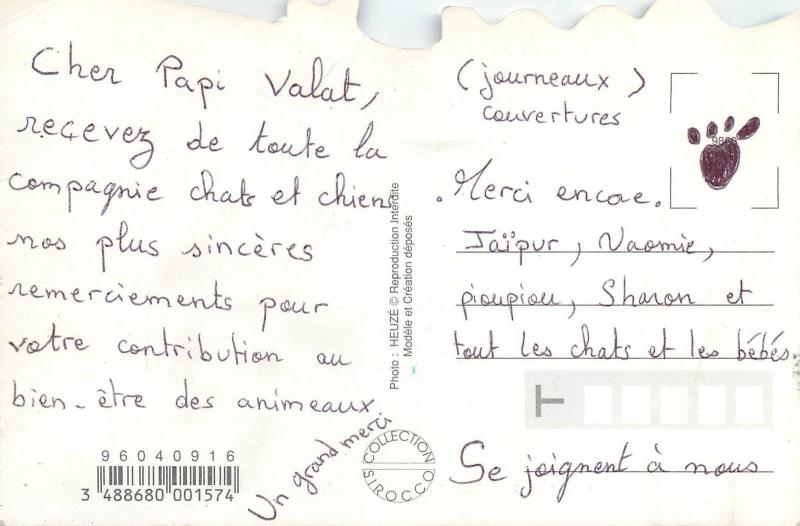 Cher Papi Valat,
recevez de toute la
compagnie chats et chiens
nos plus sincères
remerciements pour
votre contribution au
bien-être des animeaux.
Un grand merci
96040916
3 488680 001574
COLLECTION
SIROCCO
Photo : HEUZÉ © Reproduction Interdite
Modèle et Création déposés
(journeaux)
couvertures
.Merci encore.
Jaïpur, Naomie,
pioupiou, Sharon et
tout les chats et les bébés.
Se joignent à nous